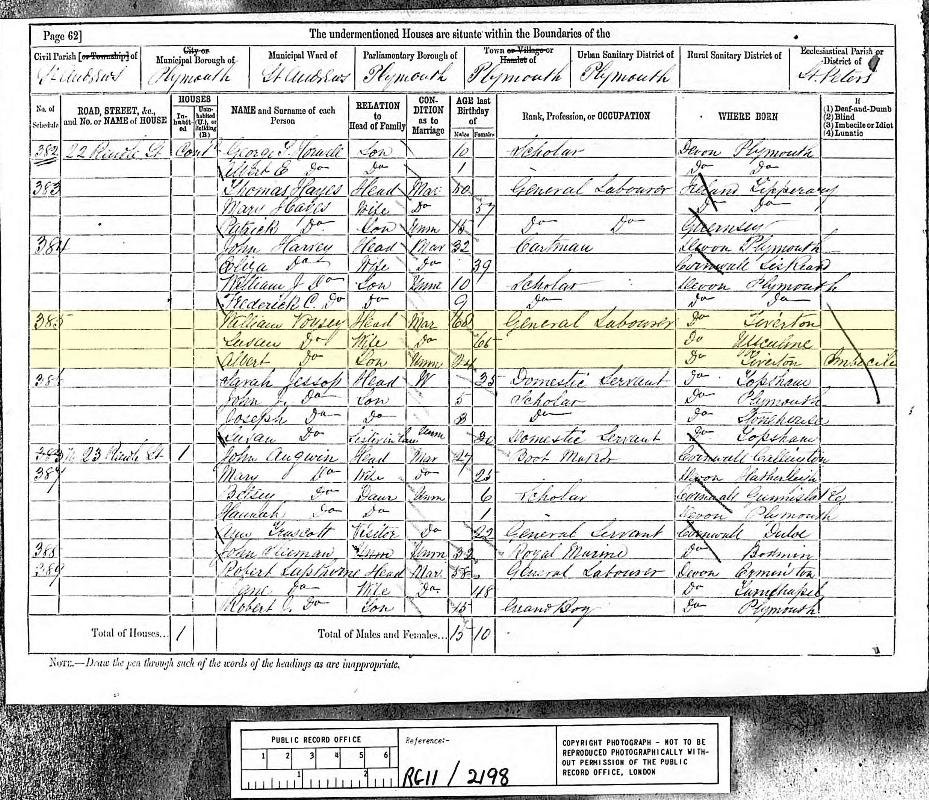 Page 62]
The undermentioned Houses are situate within the Boundaries of the
Civil Parish [or Township] of
City or Municipal Borough of
Municipal Ward of
Parliamentary Borough of
Town or Village or Hamlet of
Urban Sanitary District of
Rural Sanitary District of
Ecclesiastical Parish or District of
St Andrews Plymouth St Andrews Plymouth Plymouth Plymouth St Peters
No. of Schedule
ROAD, STREET, &c., and No. or NAME of HOUSE
HOUSES
Inhabited
Uninhabited (U.), or Building (B.)
NAME and Surname of each Person
RELATION to Head of Family
CONDITION as to Marriage
AGE last Birthday of
Males Females
Rank, Profession, or OCCUPATION
WHERE BORN
If
(1) Deaf-and-Dumb
(2) Blind
(3) Imbecile or Idiot
(4) Lunatic
382 22 St Cont George Son 10 Scholar Devon Plymouth
Albert E Do Do 1 Do Do
383 Thomas Hayes Head Mar 60 General Labourer Ireland Tipperary
Mary Hayes Wife Do 57 Do Do
Patrick Do Son Unm 18 Do Do Guernsey
384 John Harvey Head Mar 32 Cartman Devon Plymouth
Eliza Do Wife Do 39 Cornwall Liskeard
William J Do Son Unm 10 Scholar Devon Plymouth
Frederick C. Do Do 9 Do Do Do
385 William Vorsey Head Mar 68 General Labourer Do Tiverton
Susan Do Wife Do 66 Do Uffculme
Albert Do Son Unm 24 Do Tiverton Imbecile
386 Sarah Jessop Head W 35 Domestic Servant Do Topsham
John J. Do Son 5 Scholar Do Plymouth
Joseph Do Do 3 Do Do Stonehouse
Susan Do Sister in law Unm 20 Domestic Servant Do Topsham
23 St 1 John Angwin Head Mar 27 Boot Maker Cornwall Callington
387 Mary Do Wife Do 25 Devon Hatherleigh
Betsey Do Daur Unm 6 Scholar Cornwall Gunnislake
Hannah Do Do 1 Devon Plymouth
Ann Truscott Visitor Do 22 General Servant Cornwall
388 John Unm 32 Royal Marine Do Bodmin
389 Robert Lapthorne Head Mar 58 General Labourer Devon Ermington
Jane Do Wife Do 48 Do Turnchapel
Robert J. Do Son 15 Errand Boy Do Plymouth
Total of Houses... 1 Total of Males and Females... 15 10
NOTE.—Draw the pen through such of the words of the headings as are inappropriate.
PUBLIC RECORD OFFICE
1 2 3 4 5 6
1 2
Reference:-
RG11 / 2198
COPYRIGHT PHOTOGRAPH - NOT TO BE
REPRODUCED PHOTOGRAPHICALLY WITH-
OUT PERMISSION OF THE PUBLIC
RECORD OFFICE, LONDON